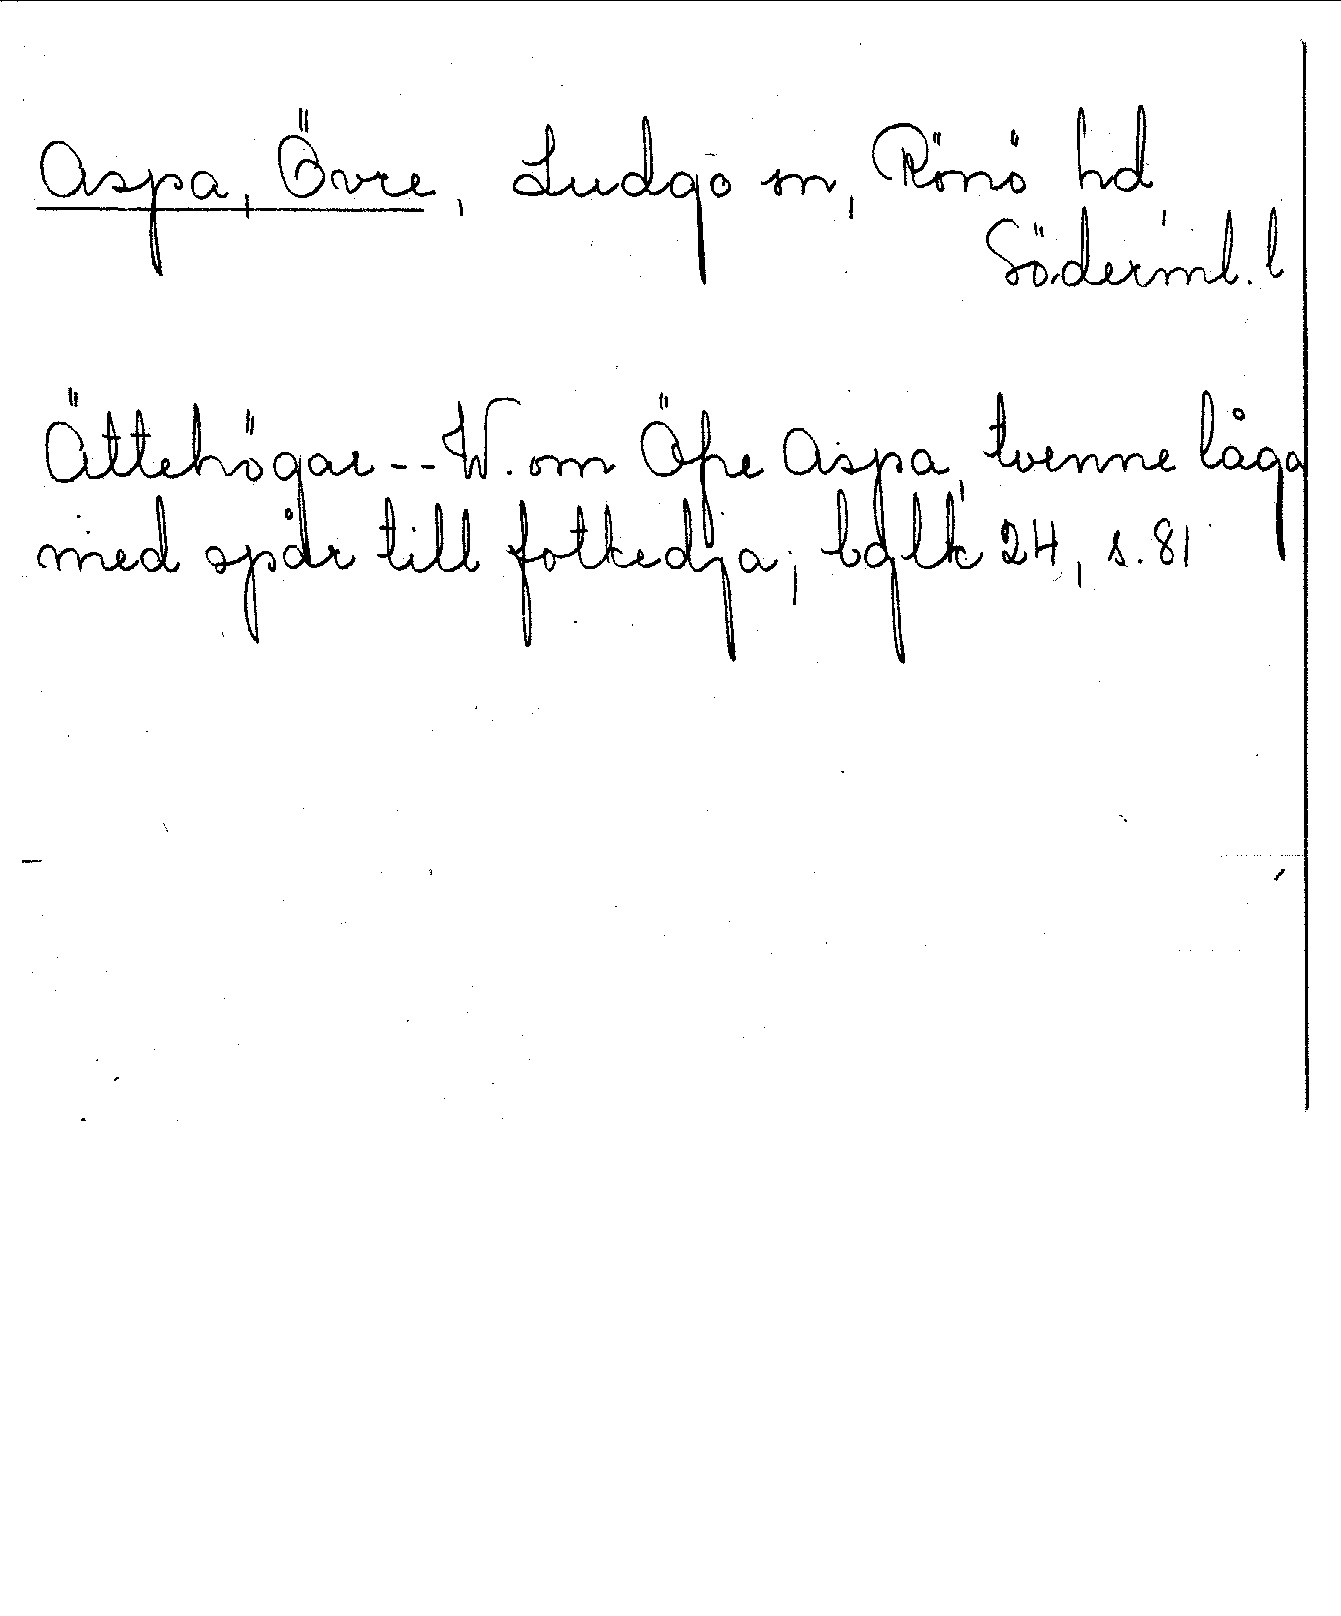 Aspa, Övre, Ludgo sn, Rönö hd,
Söderml. l
Ättehögar -- W. om Öfre Aspa, tvenne låga
med spår till fotkedja; bqlk 24, s. 81